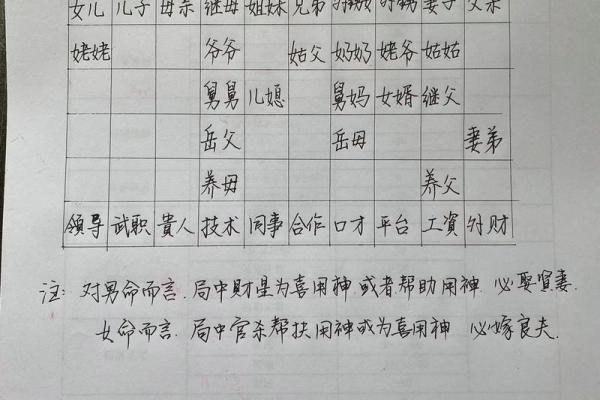 女儿 儿子 母亲 继母 姐妹 兄弟 妻子 父亲
姥姥 爷爷 姑父 奶奶 姥爷 姑姑
舅舅 儿媳 舅妈 女婿 继父
岳父 岳母 妻弟
养母 养父
领导 武职 貴人 技术 同事 合作 口才 平台 工資 外财
注: 对男命而言.局中財星为喜用神.或者帮助用神 必娶賢妻.
女命而言.局中官杀帮扶用神或为喜用神 必嫁良夫.